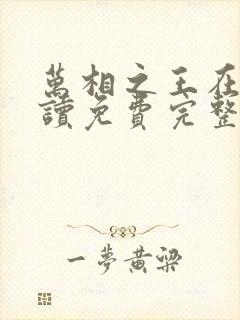 萬相之王在
讀免費完整
一夢黃梁